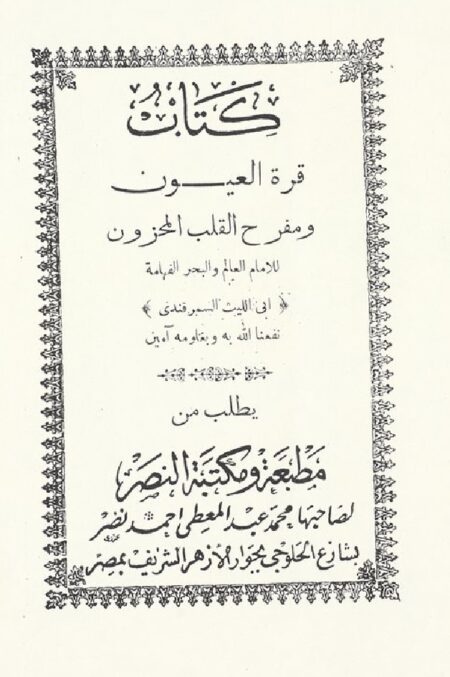 كتاب
قرة العيون
ومفرح القلب المحزون
للامام العالم والبحر الفهامة
﴿ ابى الليث السمرقندى ﴾
نفعنا الله به وبعلومه آمين
يطلب من
مطبعة ومكتبة النصر
لصاحبها محمد عبد المعطى احمد نصر
بشارع الحلوجى بجوار الأزهر الشريف بمصر